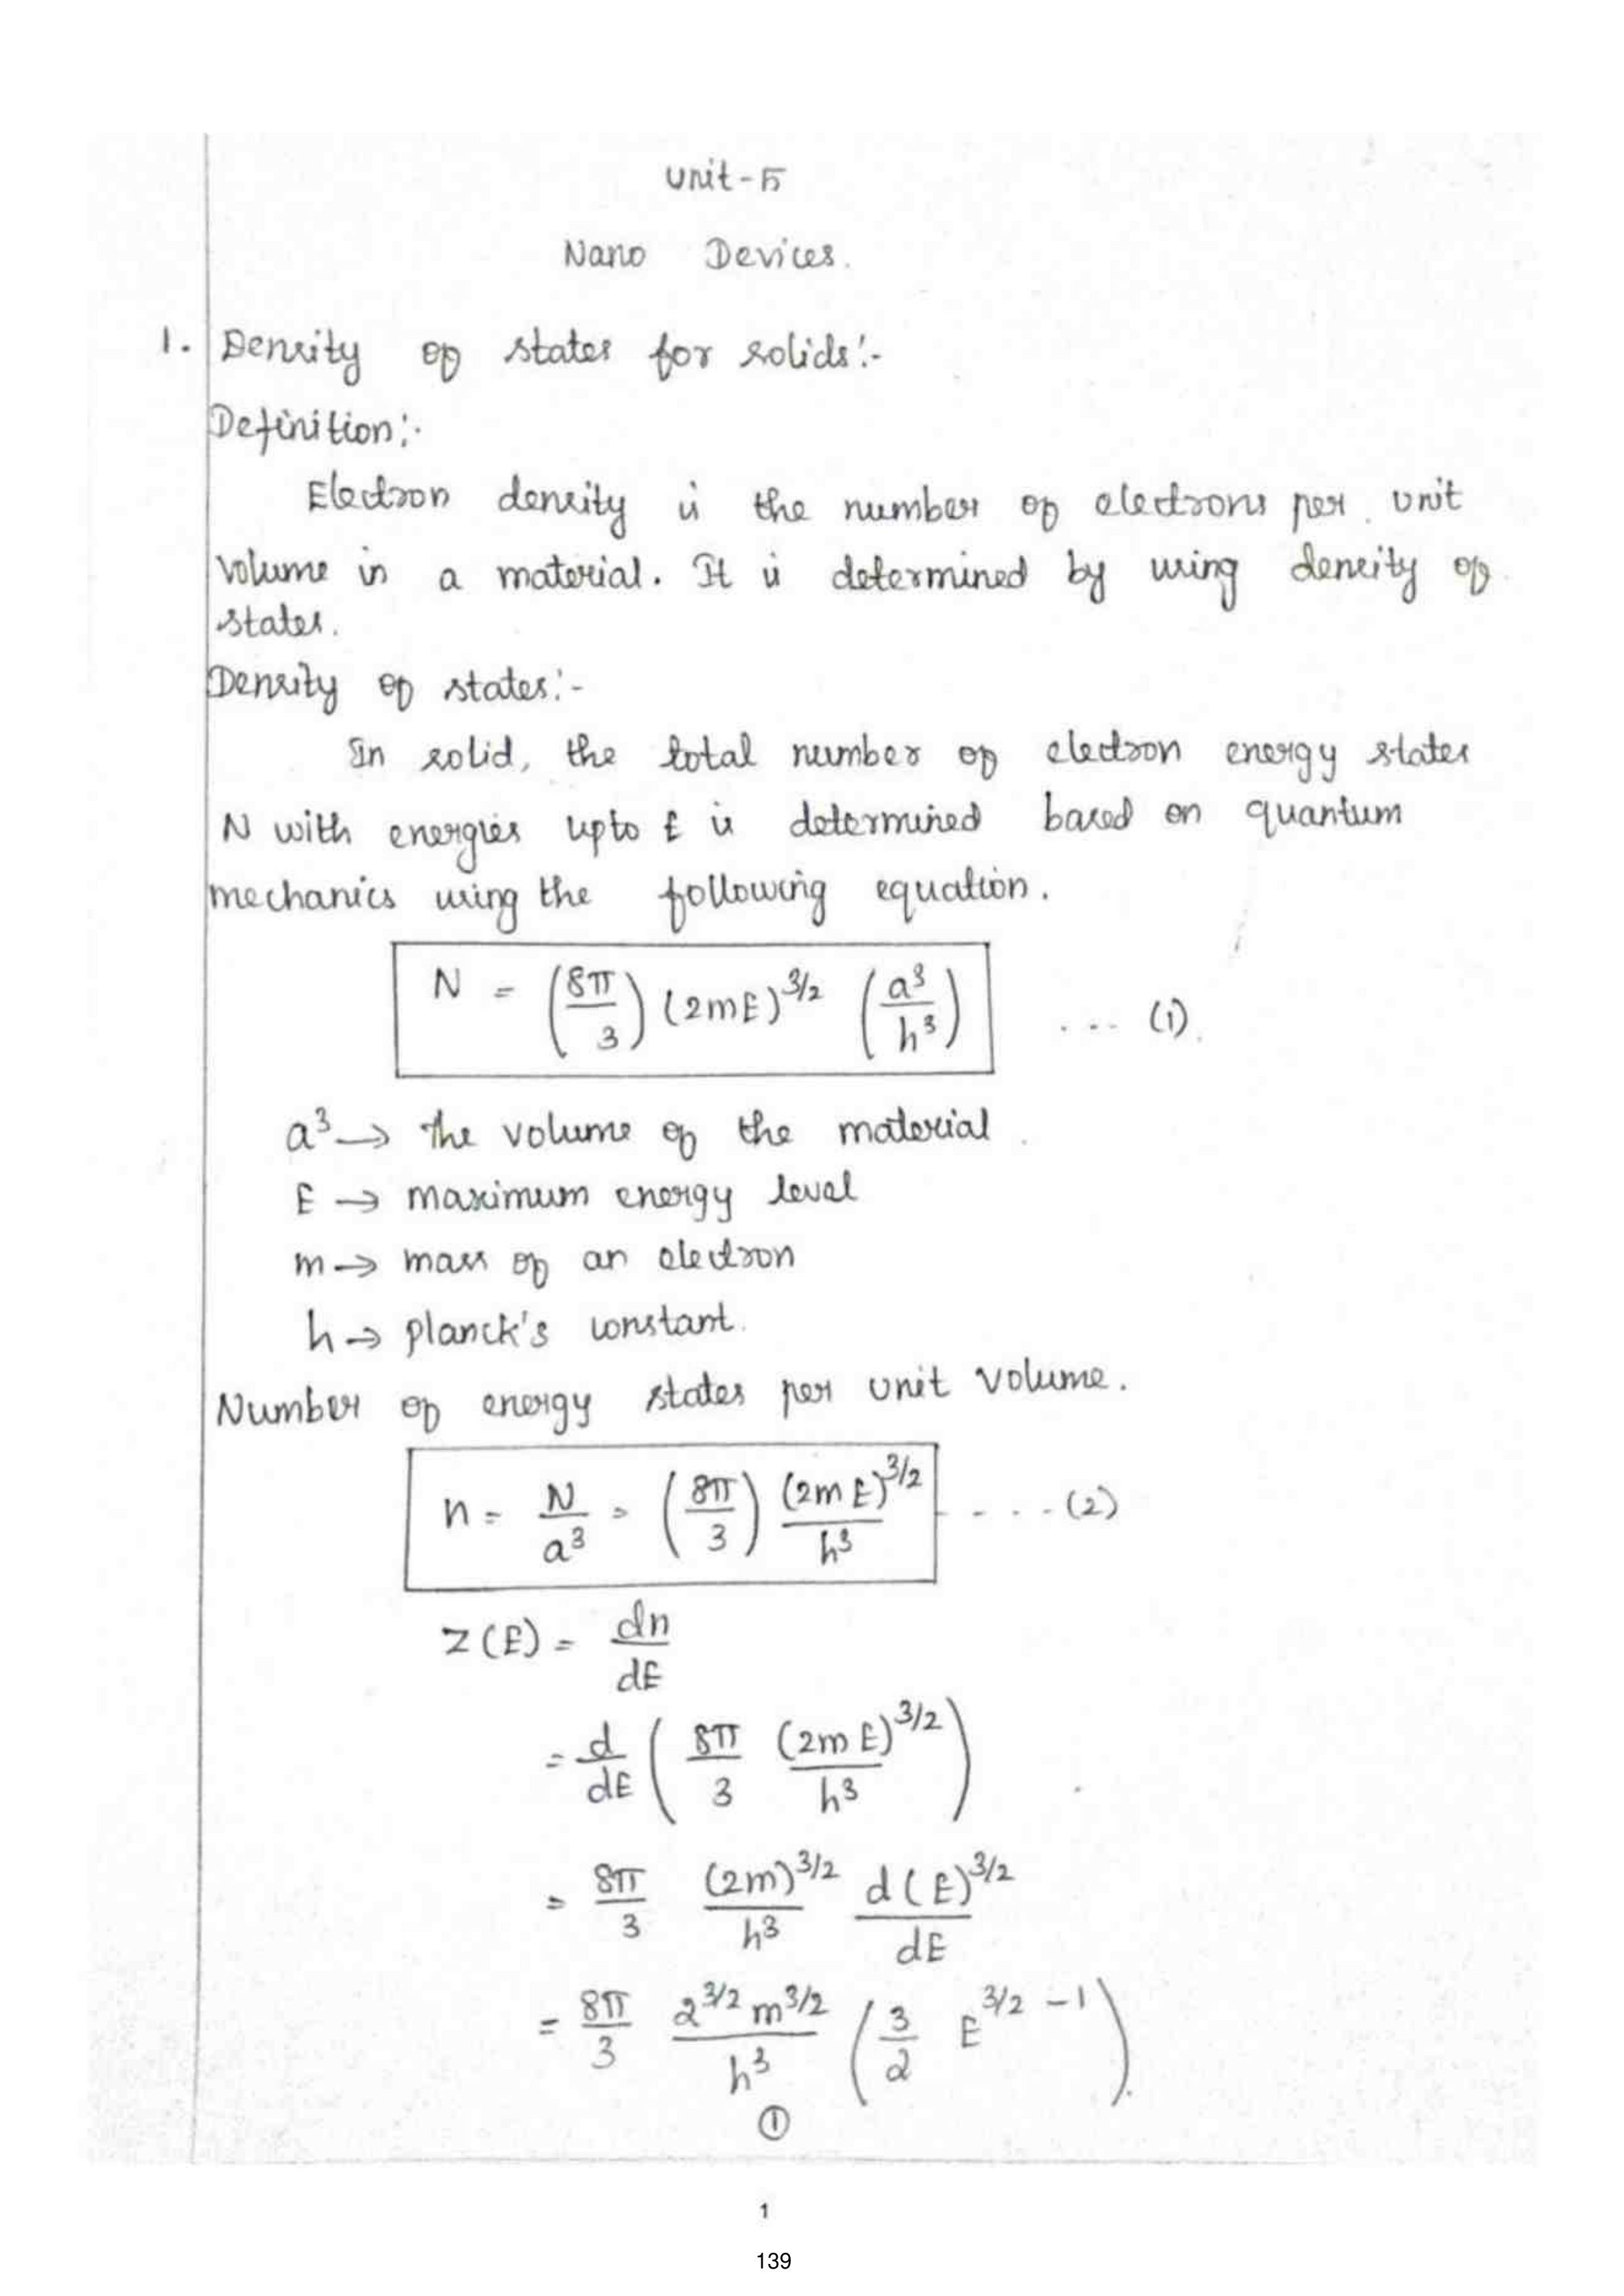 Unit-5
Nano Devices.
1. Density of states for solids:-
Definition:-
Electron density is the number of electrons per unit
volume in a material. It is determined by using density of
states.
Density of states:-
In solid, the total number of electron energy states
N with energies upto E is determined based on quantum
mechanics using the following equation.
N = (8π/3) (2mE)^3/2 (a³/h³) ... (1)
a³ → the volume of the material
E → maximum energy level
m → mass of an electron
h → planck's constant.
Number of energy states per unit volume.
n = N/a³ = (8π/3) (2mE)^3/2/h³ ....(2)
Z(E) = dn/dE
= d/dE (8π/3 (2mE)^3/2/h³)
= 8π/3 (2m)^3/2/h³ d(E)^3/2/dE
= 8π/3 2^3/2 m^3/2/h³ (3/2 E^3/2 -1)
①
1
139